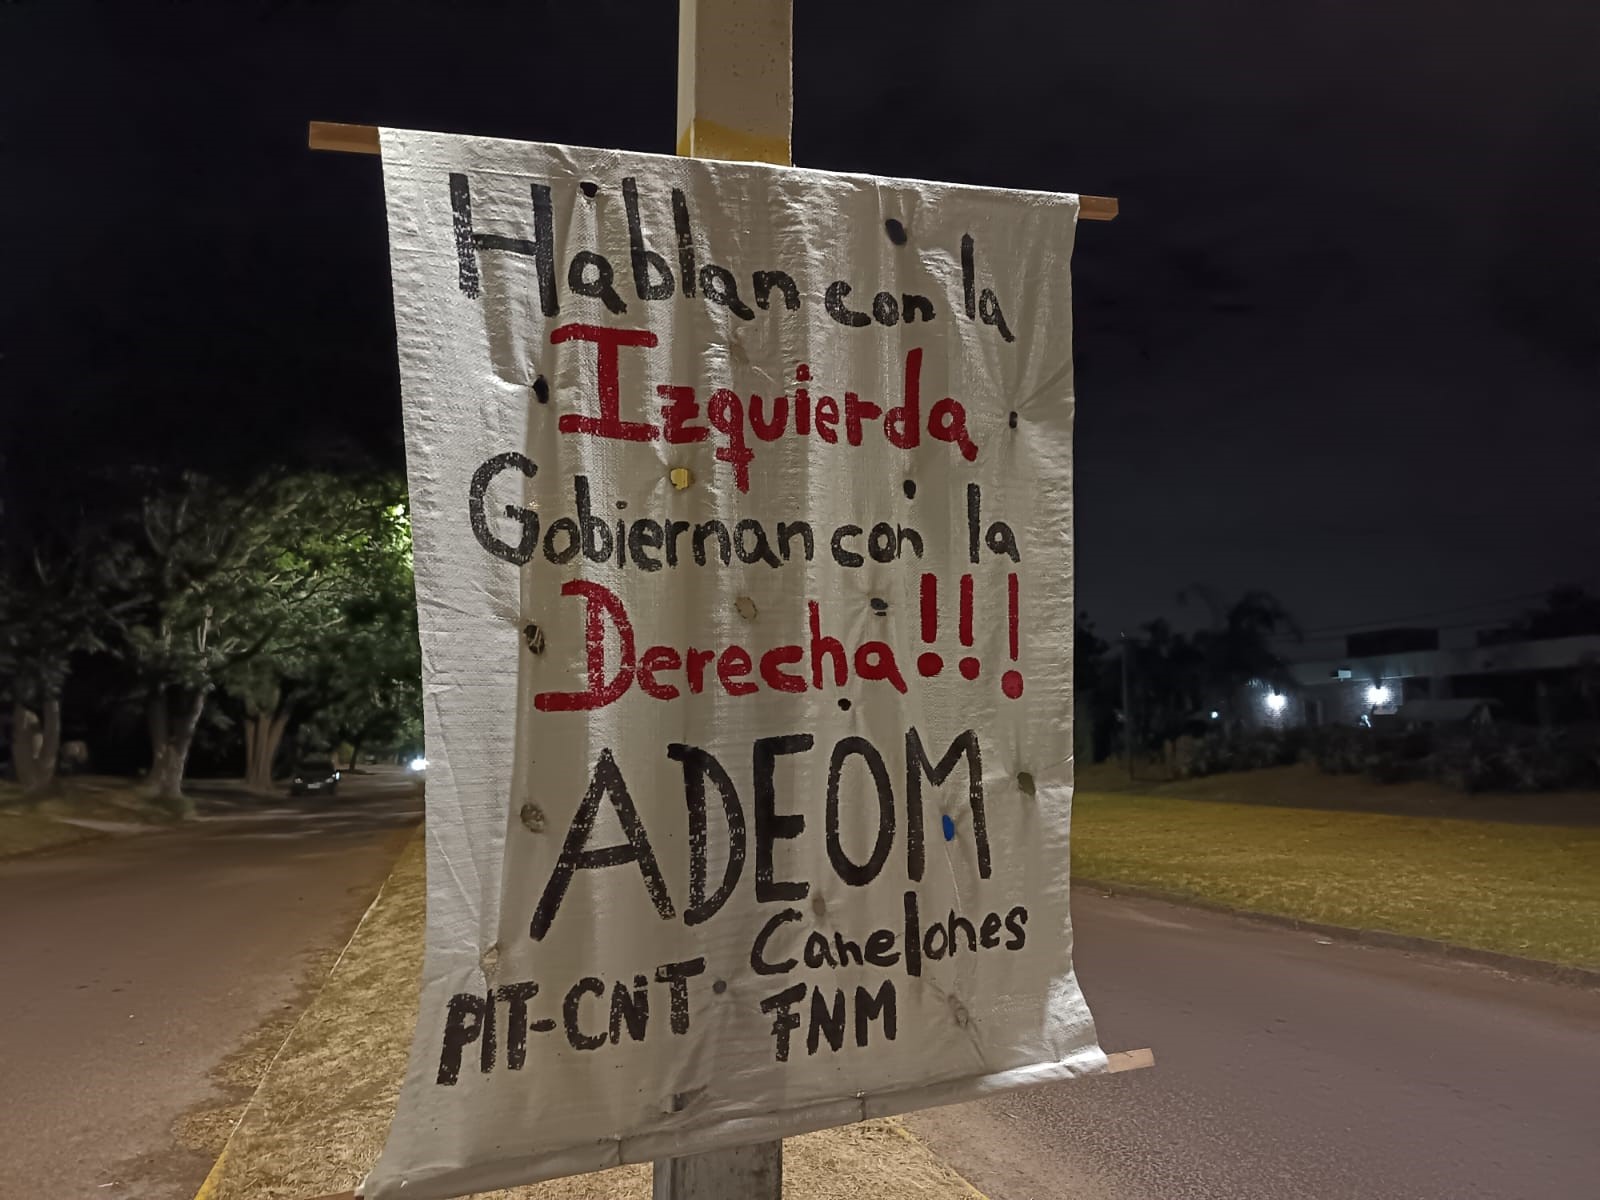 Hablan con la
Izquierda
Gobiernan con la
Derecha!!!
ADEOM
Canelones
PIT-CNT FNM